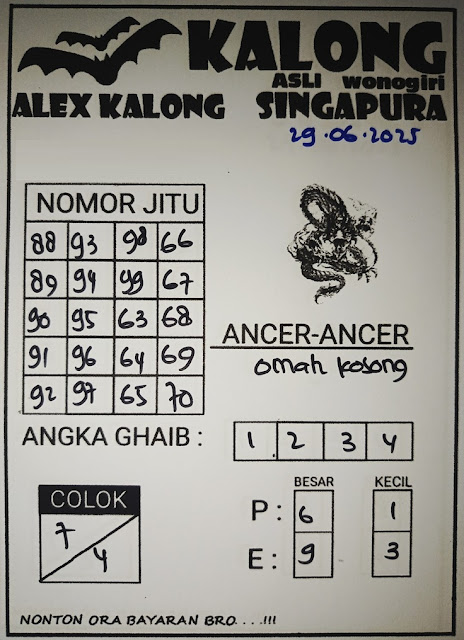 KALONG
ASLI wonogiri
ALEX KALONG SINGAPURA
29.06.2025
NOMOR JITU
88 93 98 66
89 94 99 67
90 95 63 68
91 96 64 69
92 97 65 70
ANCER-ANCER
omah kosong
ANGKA GHAIB : 1 2 3 4
BESAR KECIL
COLOK
7 4
P : 6 1
E : 9 3
NONTON ORA BAYARAN BRO. . . .!!!